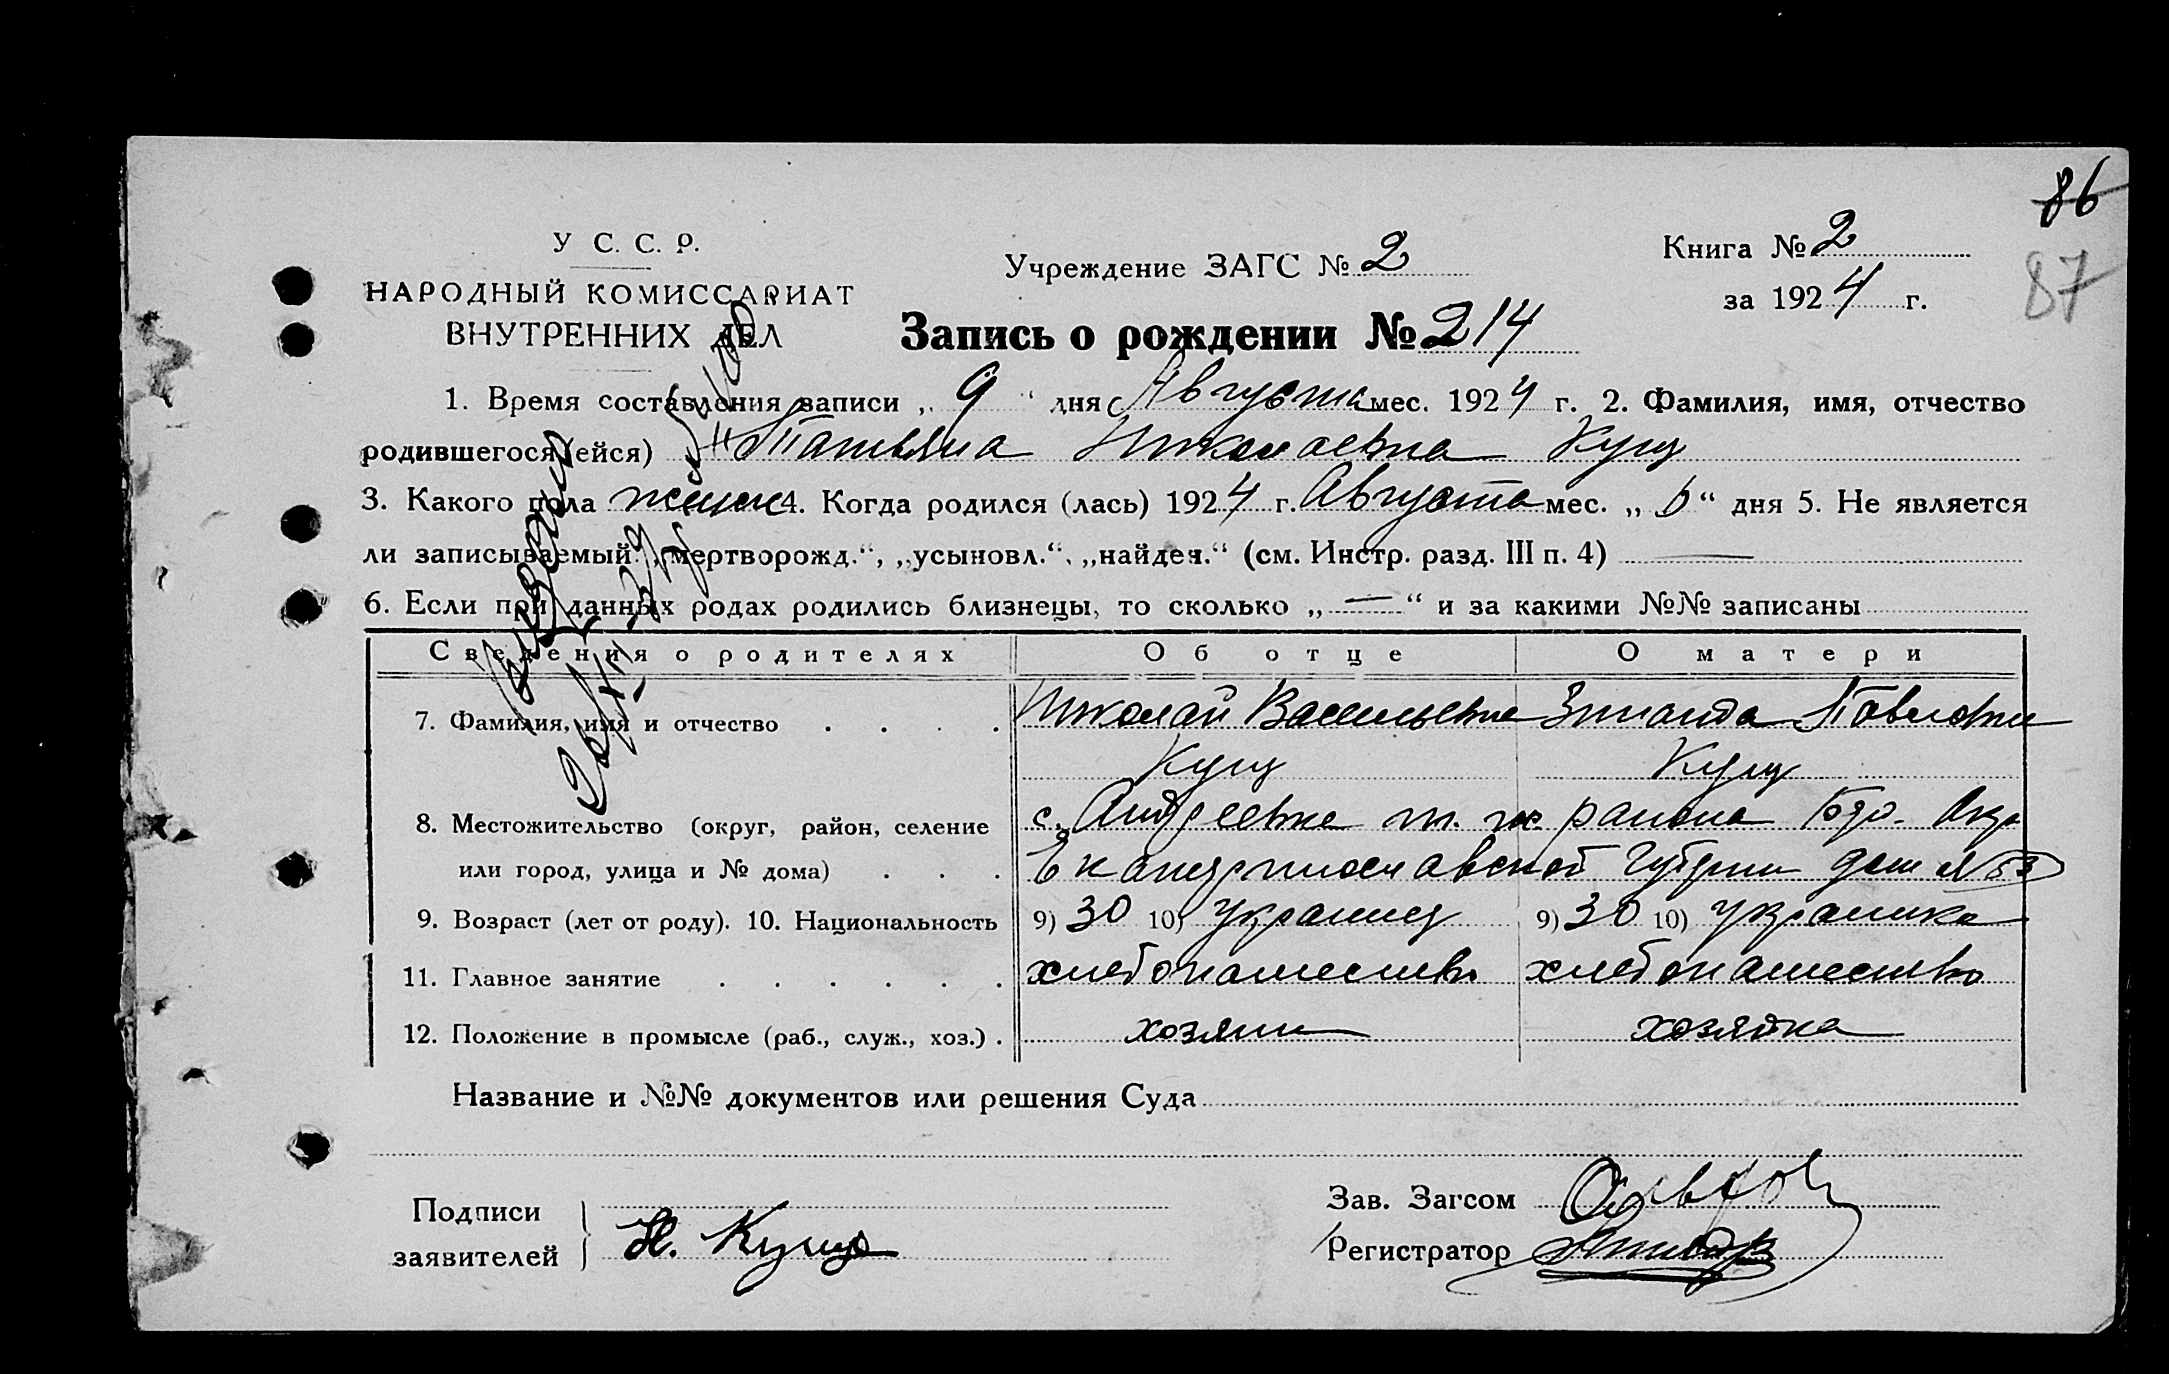 86
87
У С. С. Р.
НАРОДНЫЙ КОМИССАРИАТ
ВНУТРЕННИХ ДЕЛ
Учреждение ЗАГС № 2
Книга № 2
за 1924 г.
Запись о рождении № 214
1. Время составления записи „ 9 “ дня Августа мес. 1924 г. 2. Фамилия, имя, отчество
родившегося (ейся) Татьяна Николаевна Кущ
3. Какого пола женск 4. Когда родился (лась) 1924 г. Августа мес. „ 6 “ дня 5. Не является
ли записываемый „мертворожд.“, „усыновл.“, „найден.“ (см. Инстр. разд. III п. 4) —
6. Если при данных родах родились близнецы, то сколько „ — “ и за какими №№ записаны
Сведения о родителях Об отце О матери
7. Фамилия, имя и отчество . . . . Николай Васильевич Зинаида Павловна
Кущ Кущ
8. Местожительство (округ, район, селение с. Андреевке т. ж. района Бдр. Окр
или город, улица и № дома) . . . Екатеринославской Губернии дом № 53
9. Возраст (лет от роду). 10. Национальность 9) 30 10) Украинец 9) 30 10) украинка
11. Главное занятие . . . . . . хлебопашество хлебопашество
12. Положение в промысле (раб., служ., хоз.) . хозяин хозяйка
Название и №№ документов или решения Суда
Подписи
заявителей
Н. Кущ
Зав. Загсом
Регистратор